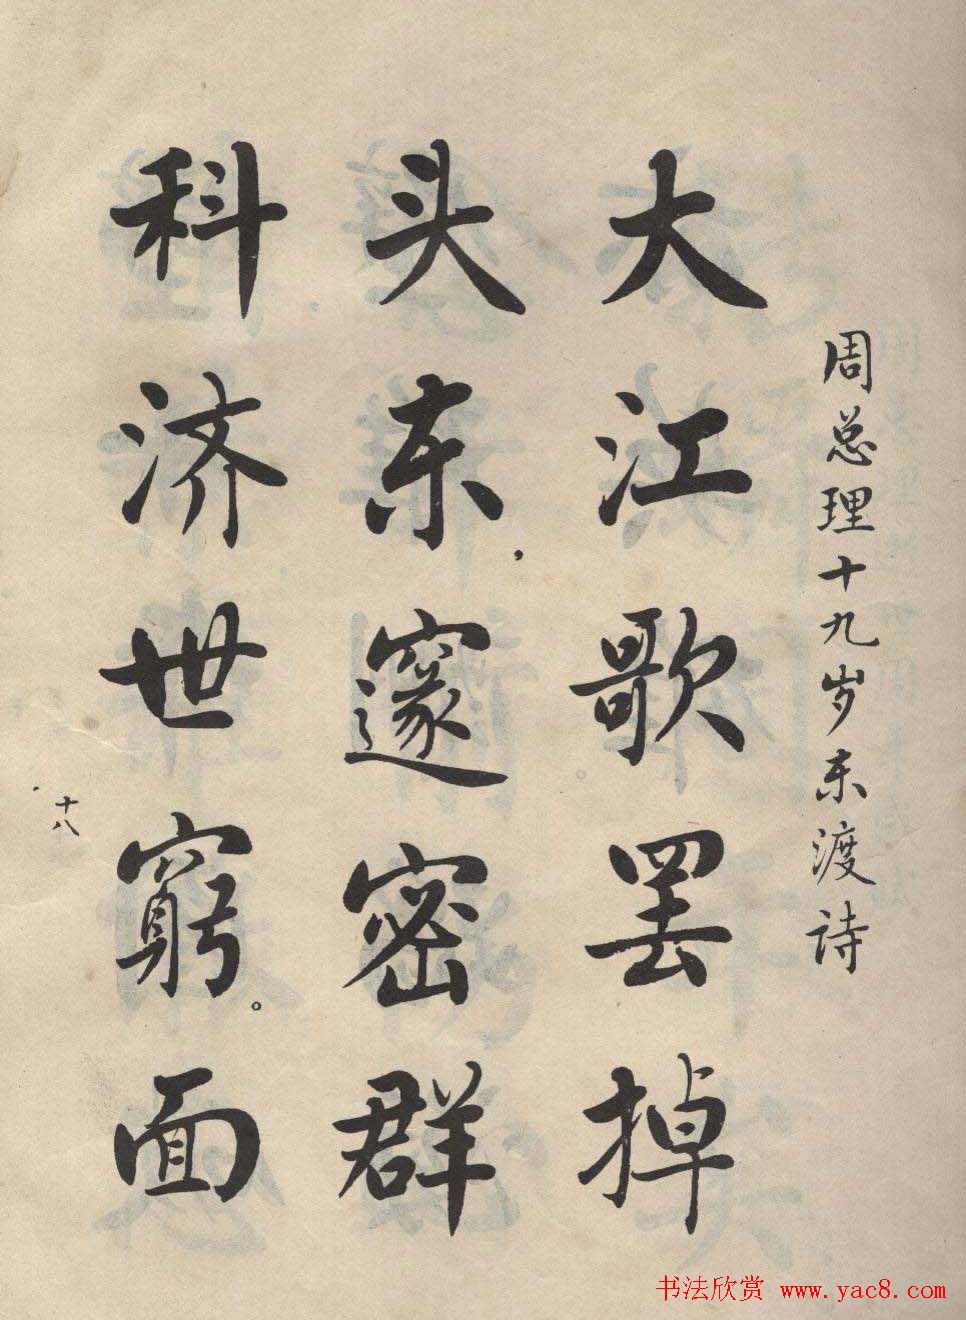 周总理十九岁东渡诗
大江歌罢掉
头东，邃密群
科济世窮。面
十八
书法欣赏 www.yac8.com